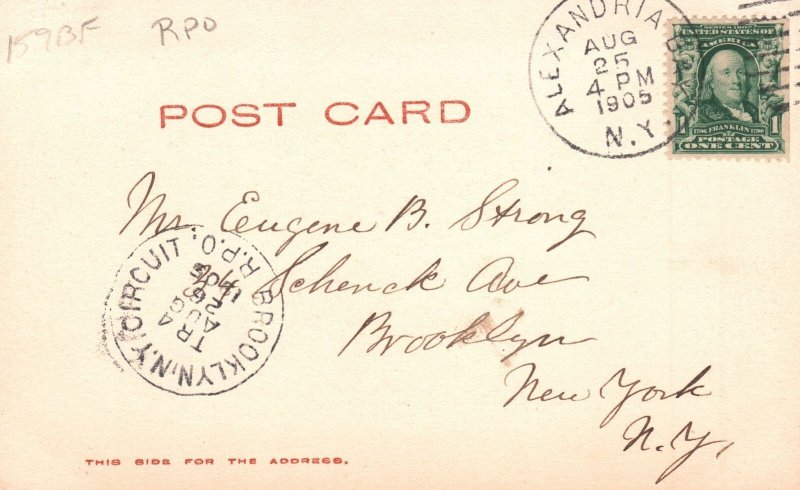 159BF RPO
ALEXANDRIA BAY
AUG
25
4 PM
1905
N.Y.
SERIES 1902
UNITED STATES OF
AMERICA
1 1706 FRANKLIN 1790 1
POSTAGE
ONE CENT
POST CARD
Mr. Eugene B. Strong
Schenck Ave
Brooklyn
New York
N.Y.
BROOKLYN, N.Y. CIRCUIT. R.P.O.
TR 4
AUG
26
05
THIS SIDE FOR THE ADDRESS.